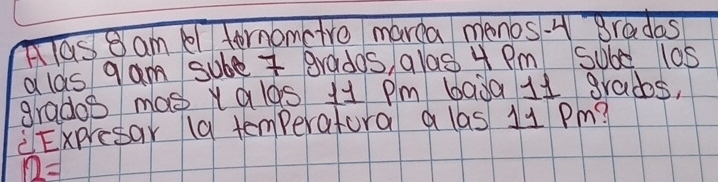 A las 8 am el tornometro marca menos -4 grados
a las 9 am sube 7 grados, a las 4 pm sube los
grados mas y a las 11 pm baja 11 grados,
¿Expresar la temperatura a las 11 pm?
R=